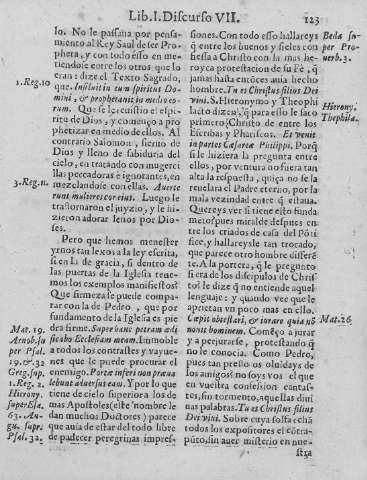 Lib.I.Discurso VII.
123
lo. No le passaua por pensa-
miento al Rey Saul de ser Pro-
pheta, y con todo esso en me-
tiendose entre los otros que lo
eran: dize el Texto Sagrado,
que. Insiluit in eum spiritus Do-
mini, & prophetauit in medio eo-
rum. Que se le enuistio el espi-
ritu de Dios, y començo a pro-
phetizar en medio de ellos. Al
contrario Salomon, sieruo de
Dios y lleno de sabiduria del
cielo, en tratando con mugerci
llas peccadoras e ignorantes, en
mezclandose con ellas. Auerte
runt mulieres cor eius. Luego le
trastornaron el juyzio, y le hi-
zieron adorar leños por Dio-
ses.
Pero que hemos menester
yrnos tan lexos a la ley escrita,
si en la de gracia, si dentro de
las puertas de la Iglesia tene-
mos los exemplos manifiestos?
Que firmeza se puede compa-
rar con la de Pedro, que por
fundamento de la Iglesia es pie
dra firme. Super hanc petram ædi
ficabo Ecclesiam meam. Immoble
a todos los contrastes y vayue-
nes que le puede procurar el
enemigo. Portæ inferi non præua
lebunt aduersus eam. Y por lo que
tiene de cielo superiora los de
mas Apostoles (este nombre le
dan muchos Doctores) parece
que auia de estar del todo libre
de padecer peregrinas impres-
1.Reg.10
3.Reg.11.
Mat. 19.
Arnob.su
per Psal.
19.& 32
Greg.sup.
1.Reg.2.
Hierony.
super Esa.
63. Au-
gu. supr.
Psal.32.
siones. Con todo esso hallareys
entre los buenos y fieles con
fiessa a Christo con la mas he-
royca protestacion de su Fe, q̃
jamas hasta entõces auia hecho
hombre. Tu es Christus filius Dei
viui. S. Hieronymo y Theophi
lacto dizen, q̃ para esso le saco
primero Christo de entre los
Escribas y Phariseos. Et venit
in partes Cæsareæ Philippi. Porq̃
si le huziera la pregunta entre
ellos, por ventura no fuera tan
alta la respuesta, quiça no se la
reuelara el Padre eterno, por la
mala vezindad entre q̃ estaua.
Quereys ver si tiene esto funda
meto? pues miralde despues en-
tre los criados de casa del Põti
fice, y hallareysle tan trocado,
que parece otro hombre differẽ
te. A la portera, q̃ le pregunto
si era de los discipulos de Chris-
to? le dize q̃ no entiende aquel
lenguaje: y quando vee que le
aprietan vn poco mas en ello.
Cæpit obtestari, et iurare quia nõ
nouit hominem. Comẽço a jurar
y a perjurarse, protestando q̃
no le conocia. Como Pedro,
pues tan presto os oluidays de
los amigos? no soys vos el que
en vuestra confession cantas-
tes, sin tormento, aquellas diui
nas palabras. Tu es Christus filius
Dei viui. Sobre cuya solfa echã
todos los expositores el cõtra-
pũto, sin auer misterio en nue-
stra
Beda su-
per Pro-
uerb.3.
Hierony.
Thephila.
Mat.26.